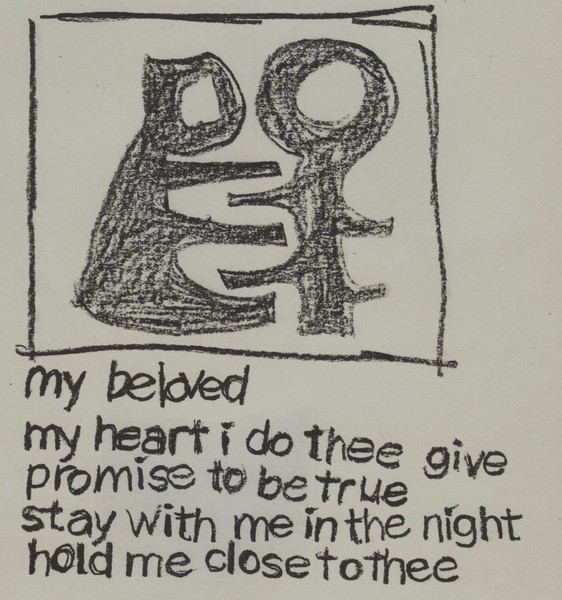 my beloved
my heart i do thee give
promise to be true
stay with me in the night
hold me close to thee